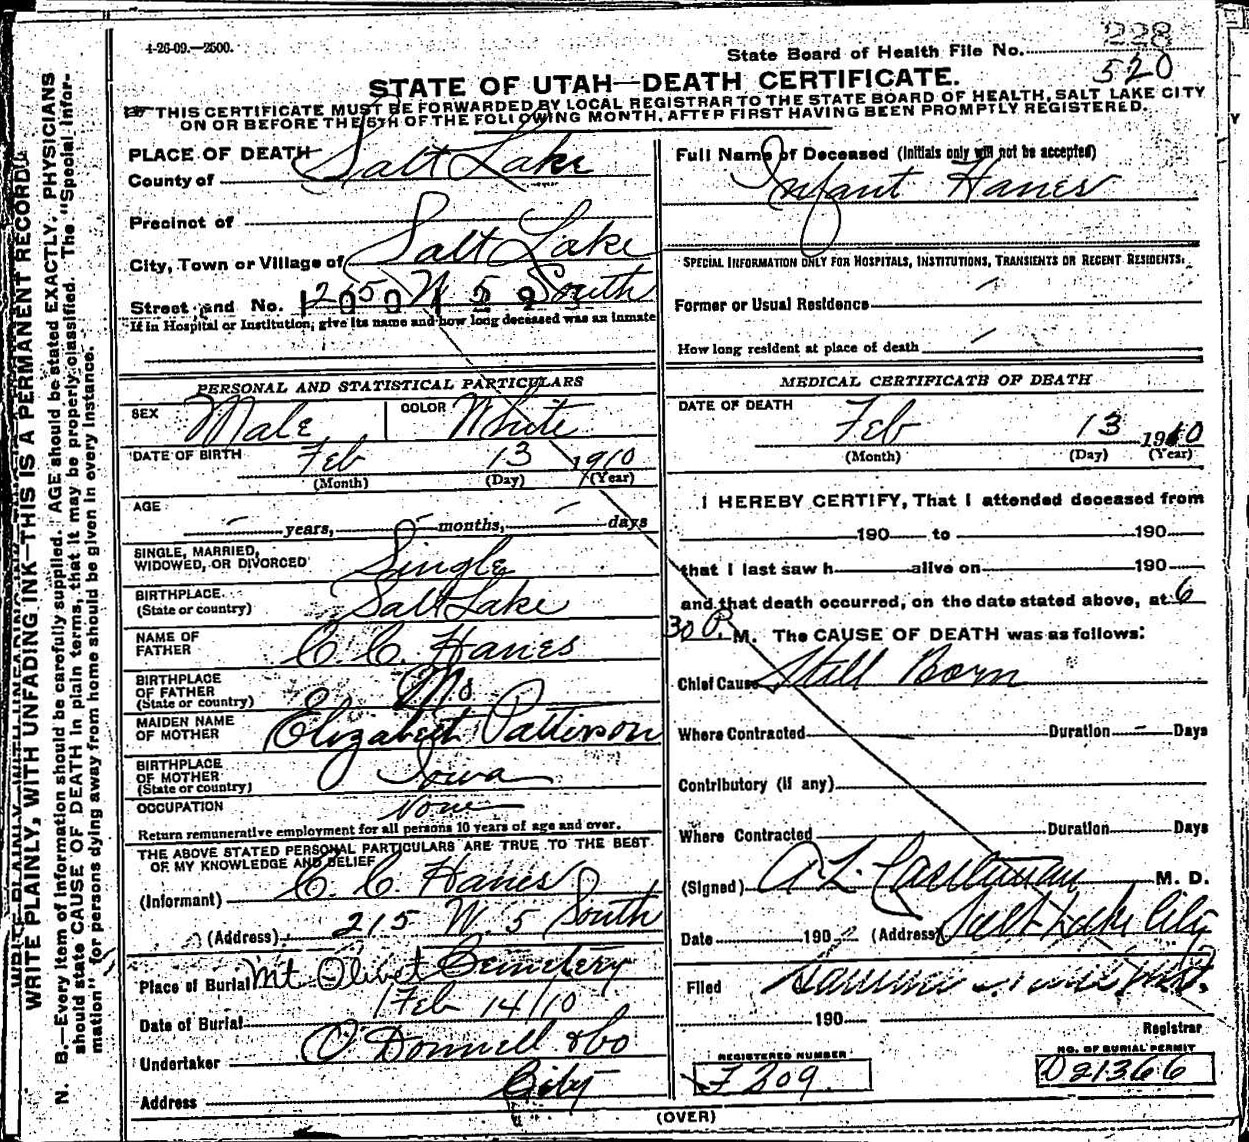 4-26-09.—2500.
State Board of Health File No. 228
520
STATE OF UTAH—DEATH CERTIFICATE.
THIS CERTIFICATE MUST BE FORWARDED BY LOCAL REGISTRAR TO THE STATE BOARD OF HEALTH, SALT LAKE CITY
ON OR BEFORE THE 5TH OF THE FOLLOWING MONTH, AFTER FIRST HAVING BEEN PROMPTLY REGISTERED.
WRITE PLAINLY, WITH UNFADING INK—THIS IS A PERMANENT RECORD.
N. B.—Every item of information should be carefully supplied. AGE should be stated EXACTLY. PHYSICIANS
should state CAUSE OF DEATH in plain terms, that it may be properly classified. The "Special Infor-
mation" for persons dying away from home should be given in every instance.
PLACE OF DEATH
County of Salt Lake
Precinct of
City, Town or Village of Salt Lake
Street and No. 250 W 5 South
If in Hospital or Institution, give its name and how long deceased was an inmate
PERSONAL AND STATISTICAL PARTICULARS
SEX Male COLOR White
DATE OF BIRTH Feb 13 1910
(Month) (Day) (Year)
AGE
years, months, days
SINGLE, MARRIED,
WIDOWED, OR DIVORCED Single
BIRTHPLACE
(State or country) Salt Lake
NAME OF
FATHER C. C. Hanes
BIRTHPLACE
OF FATHER
(State or country) Mo
MAIDEN NAME
OF MOTHER Elizabeth Patterson
BIRTHPLACE
OF MOTHER
(State or country) Iowa
OCCUPATION None
Return remunerative employment for all persons 10 years of age and over.
THE ABOVE STATED PERSONAL PARTICULARS ARE TRUE TO THE BEST
OF MY KNOWLEDGE AND BELIEF
(Informant) C. C. Hanes
(Address) 215 W. 5 South
Place of Burial Mt Olivet Cemetery
Date of Burial Feb 14/10
Undertaker O'Donnell & Co
Address City
Full Name of Deceased (Initials only will not be accepted)
Infant Hanes
SPECIAL INFORMATION ONLY FOR HOSPITALS, INSTITUTIONS, TRANSIENTS OR RECENT RESIDENTS:
Former or Usual Residence
How long resident at place of death
MEDICAL CERTIFICATE OF DEATH
DATE OF DEATH
Feb 13 1910
(Month) (Day) (Year)
I HEREBY CERTIFY, That I attended deceased from
190 to 190
that I last saw h alive on 190
and that death occurred, on the date stated above, at 6
30 P. M. The CAUSE OF DEATH was as follows:
Chief Cause Still Born
Where Contracted Duration Days
Contributory (if any)
Where Contracted Duration Days
(Signed) A L Castleman M. D.
Date 190 (Address) Salt Lake City
Filed
190
Registrar
REGISTERED NUMBER
F 209.
NO. OF BURIAL PERMIT
D 21366
(OVER)